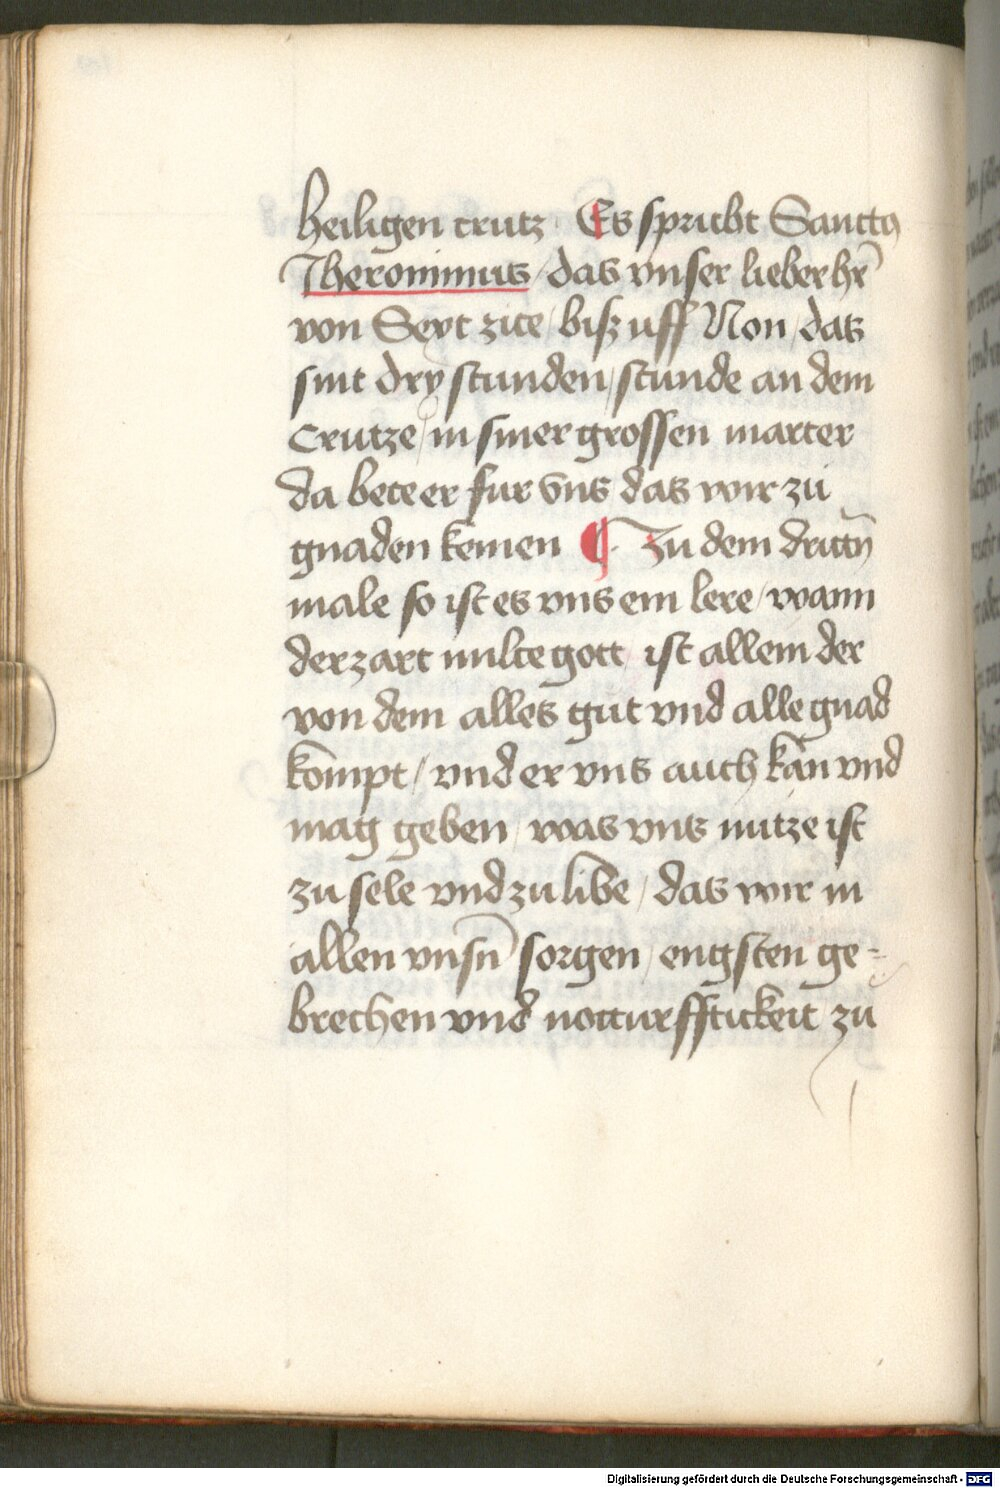 heiligen crutz · Es spricht Sanctꝰ
Jheronimus / das vnser lieber hr̄
von Sext zite / bisz uff Non / das
sint dry stunden / stunde an dem
Crutze / in siner grossen marter
da bete er fur vns das wir zu
gnaden kemen ¶ · Zu dem drittn̄
male so ist es vns ein lere / wann
der zart milte gott / ist allein der
von dem alles gut vnd alle gnad
kompt / vnd er vns auch kan vnd
mag geben / was vns nutze ist
zu sele vnd zu libe / das wir in
allen vnsn̄ sorgen / engsten ge=
brechen vnd notturfftickeit zu
Digitalisierung gefördert durch die Deutsche Forschungsgemeinschaft - DFG